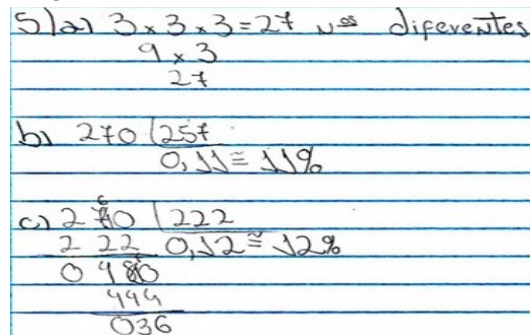 5) a) 3 x 3 x 3 = 27 nos diferentes
9 x 3
27
b) 270 257
0,11 ≅ 11%
c) 270 222
222 0,12 ≅ 12%
0480
444
036